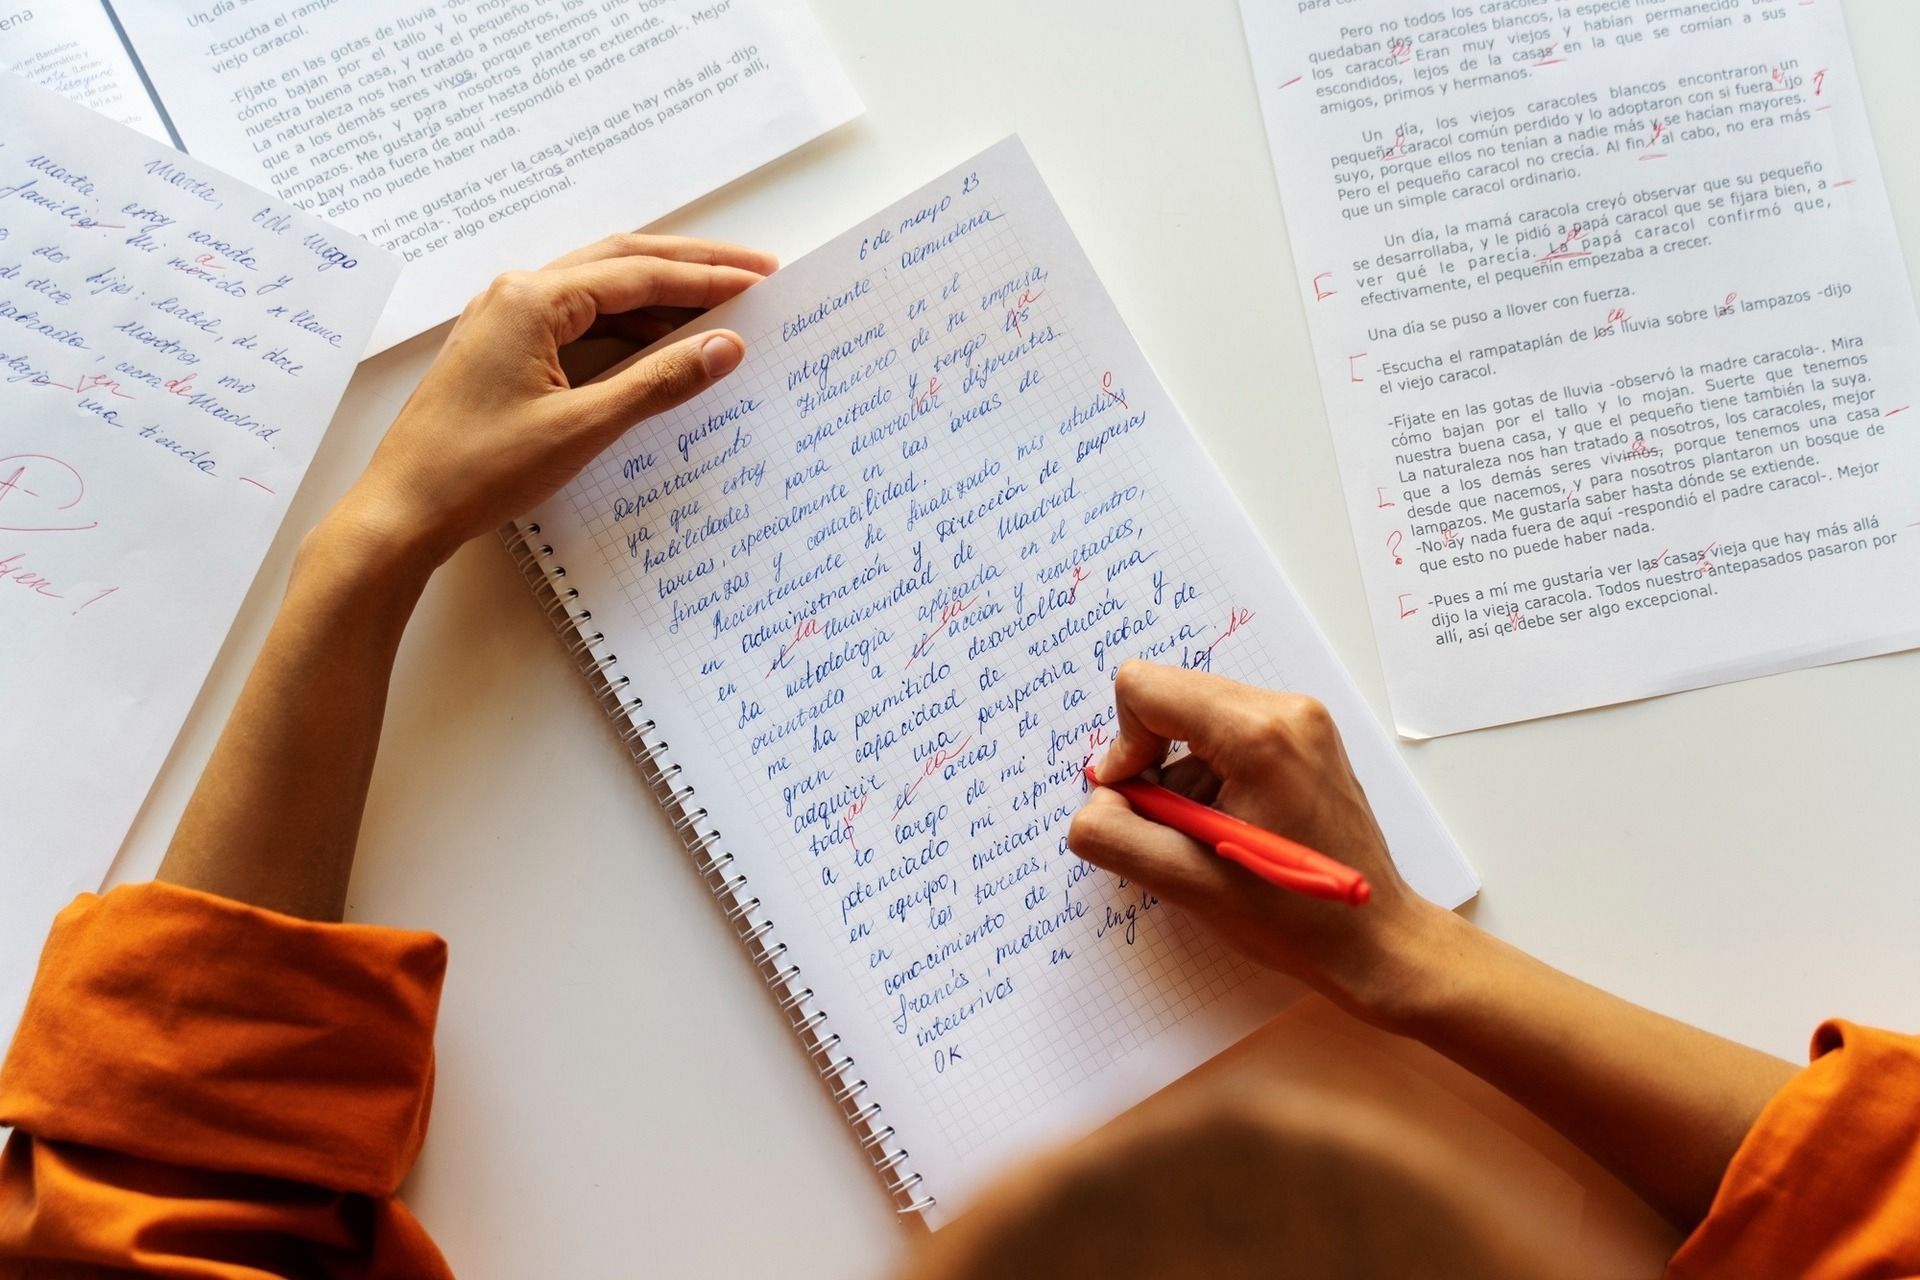 Un día s
-Escucha el rampata
viejo caracol.
-Fíjate en las gotas de lluvia -ob
cómo bajan por el tallo y lo moja
nuestra buena casa, y que el pequeño t
La naturaleza nos han tratado a nosotros, los
que a los demás seres vivos, porque tenemos una
que nacemos, y para nosotros plantaron un bosq
lampazos. Me gustaría saber hasta dónde se extiende.
-No hay nada fuera de aquí -respondió el padre caracol-. Mejor
esto no puede haber nada.
a mí me gustaría ver la casa vieja que hay más allá -dijo
caracola-. Todos nuestros antepasados pasaron por allí,
be ser algo excepcional.
Marta, 6 de mayo
Marta. estoy casada y
familia. Mi marido se llama
dos hijos: Isabel, de doce
de diez nosotros vivo
cerca de Madrid.
trabajo en una tienda
A-
bien!
6 de mayo 23
Estudiante: Almudena
Me gustaria integrarme en el
Departamento Financiero de su empresa,
ya que estoy capacitado y tengo los a
habilidades para desarrollar diferentes
tareas, especialmente en las áreas de
finanzas y contabilidad.
Recientemente he finalizado mis estudios o
en administración y Dirección de empresas
en el la Universidad de Madrid.
La metodología aplicada en el centro,
orientada a el la acción y resultados,
me ha permitido desarrollas r una
gran capacidad de resolución y
adquirir una perspectiva global de
todo as el la areas de la empresa.
a lo largo de mi formac hoy he
potenciado mi espiritu
en equipo, iniciativa
en las tareas, a
conocimiento de idi
francés, mediante
intensivos en Ingl
OK
para con
Pero no todos los caracoles
quedaban dos caracoles blancos, la especie más
los caracol. Eran muy viejos y habían permanecido
escondidos, lejos de la casas en la que se comían a sus
amigos, primos y hermanos.
Un día, los viejos caracoles blancos encontraron un
pequeña caracol común perdido y lo adoptaron con si fuera ijo ?
suyo, porque ellos no tenían a nadie más y se hacían mayores.
Pero el pequeño caracol no crecía. Al fin y al cabo, no era más
que un simple caracol ordinario.
Un día, la mamá caracola creyó observar que su pequeño
se desarrollaba, y le pidió a papá caracol que se fijara bien, a
ver qué le parecía. La papá caracol confirmó que,
efectivamente, el pequeñín empezaba a crecer.
Una día se puso a llover con fuerza.
-Escucha el rampataplán de los la lluvia sobre las lampazos -dijo
el viejo caracol.
-Fíjate en las gotas de lluvia -observó la madre caracola-. Mira
cómo bajan por el tallo y lo mojan. Suerte que tenemos
nuestra buena casa, y que el pequeño tiene también la suya.
La naturaleza nos han tratado a nosotros, los caracoles, mejor
que a los demás seres vivimos, porque tenemos una casa
desde que nacemos, y para nosotros plantaron un bosque de
lampazos. Me gustaría saber hasta dónde se extiende.
-No ay nada fuera de aquí -respondió el padre caracol-. Mejor
? que esto no puede haber nada.
-Pues a mí me gustaría ver las casas vieja que hay más allá
dijo la vieja caracola. Todos nuestro antepasados pasaron por
allí, así qe debe ser algo excepcional.